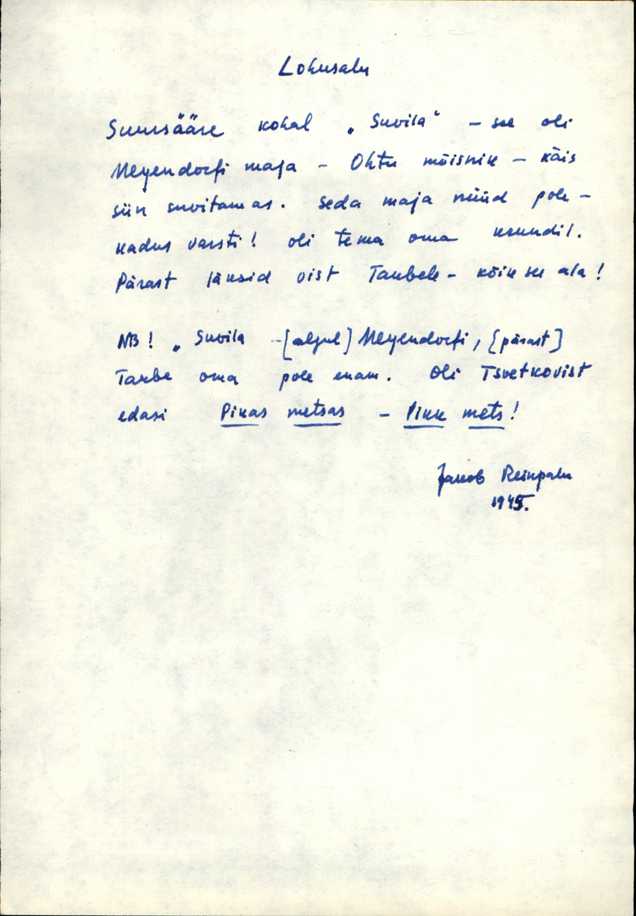 Lohusalu
Suursääre kohal „Suvila" – see oli
Meyendorfi maja – Ohtu mõisnik – käis
siin suvitamas. Seda maja nüüd pole –
kadus varsti! Oli tema oma krundil.
Pärast läksid vist Taubele – kõik see ala!
NB! „Suvila – [algul] Meyendorfi, [pärast]
Taube oma pole enam. Oli Tsvetkovist
edasi Pikas metsas – Pikk mets!
Jakob Reinpalu
1945.